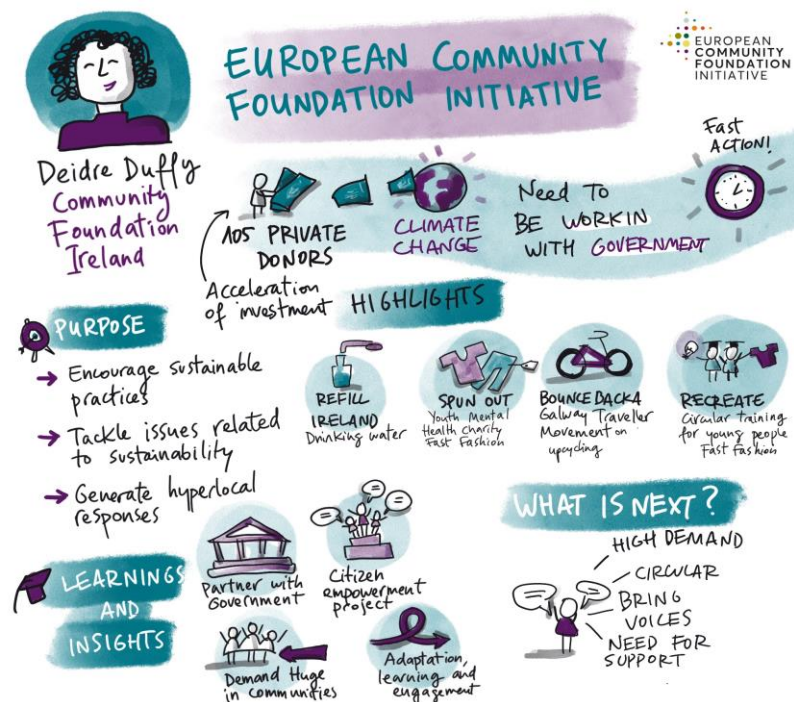 EUROPEAN COMMUNITY
FOUNDATION INITIATIVE
EUROPEAN
COMMUNITY
FOUNDATION
INITIATIVE
Deidre Duffy
Community
Foundation
Ireland
105 PRIVATE
DONORS
Acceleration
of investment
CLIMATE
CHANGE
Need To
BE WORKIN
WITH GOVERNMENT
Fast
ACTION!
PURPOSE
Encourage sustainable
practices
Tackle issues related
to sustainability
Generate hyperlocal
responses
HIGHLIGHTS
REFILL
IRELAND
Drinking water
SPUN OUT
Youth Mental
Health Charity
Fast Fashion
BOUNCEBACKA
Galway Traveller
Movement on
upcycling
RECREATE
Circular training
for young people
Fast Fashion
LEARNINGS
AND
INSIGHTS
Partner with
Government
Citizen
empowerment
project
Demand Huge
in communities
Adaptation,
learning and
engagement
WHAT IS NEXT?
HIGH DEMAND
CIRCULAR
BRING
VOICES
NEED FOR
SUPPORT